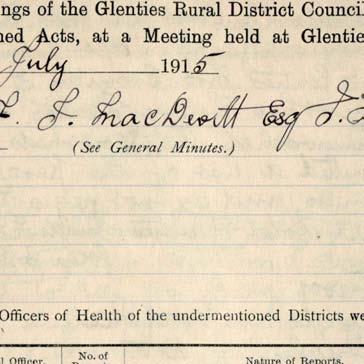 ngs of the Glenties Rural District Council
ned Acts, at a Meeting held at Glentie
July 1915
J. MacDevitt Esq J.
(See General Minutes.)
Officers of Health of the undermentioned Districts we
l Officer. No. of Nature of Reports.